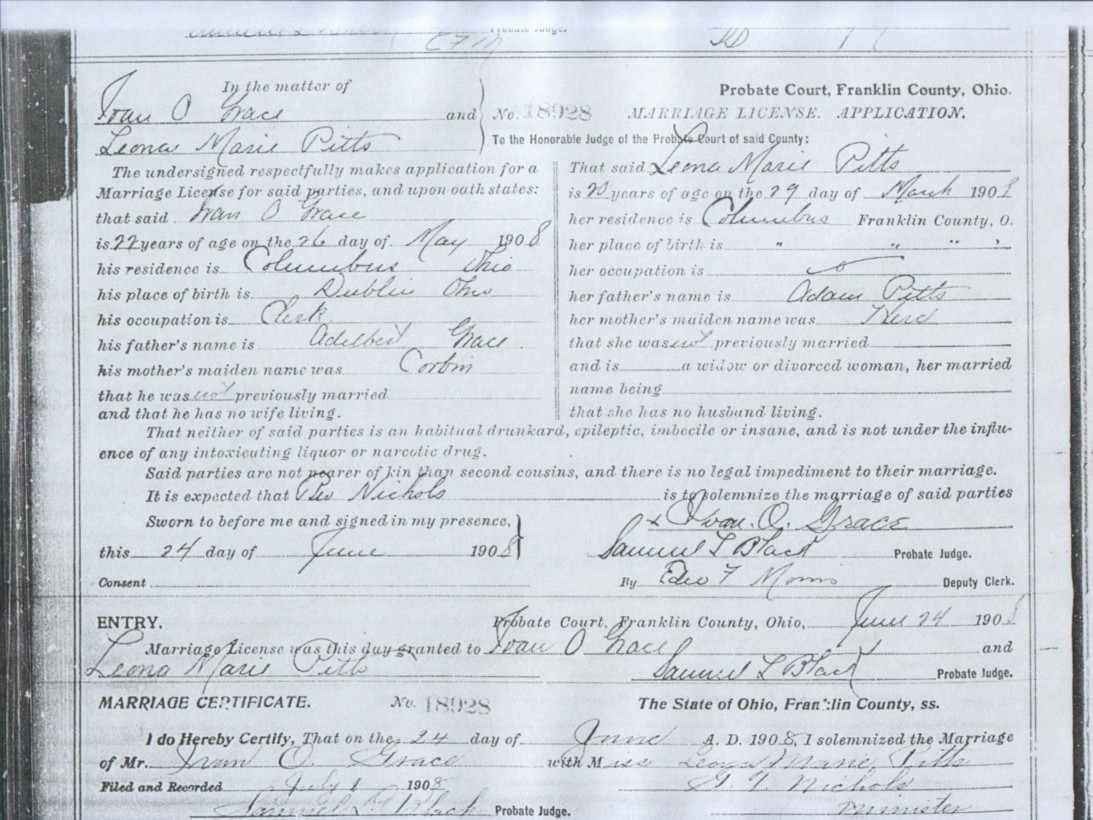 Probate Judge.
In the matter of
Ivan O Grace and
Leona Marie Pitts
Probate Court, Franklin County, Ohio.
No. 18928 MARRIAGE LICENSE. APPLICATION.
To the Honorable Judge of the Probate Court of said County:
The undersigned respectfully makes application for a
Marriage License for said parties, and upon oath states:
that said Ivan O Grace
is 22 years of age on the 26 day of May 1908
his residence is Columbus Ohio
his place of birth is Dublin Ohio
his occupation is Clerk
his father's name is Adelbert Grace
his mother's maiden name was Corbin
that he was not previously married
and that he has no wife living.
That said Leona Marie Pitts
is 20 years of age on the 29 day of March 1908
her residence is Columbus Franklin County, O.
her place of birth is " " " "
her occupation is
her father's name is Adam Pitts
her mother's maiden name was
that she was not previously married
and is a widow or divorced woman, her married
name being
that she has no husband living.
That neither of said parties is an habitual drunkard, epileptic, imbecile or insane, and is not under the influ-
ence of any intoxicating liquor or narcotic drug.
Said parties are not nearer of kin than second cousins, and there is no legal impediment to their marriage.
It is expected that Rev Nichols is to solemnize the marriage of said parties
Sworn to before me and signed in my presence,
this 24 day of June 1908
Consent
x Ivan. O. Grace
Samuel L Black Probate Judge.
By Edw F Morris Deputy Clerk.
ENTRY. Probate Court, Franklin County, Ohio, June 24 1908
Marriage License was this day granted to Ivan O Grace and
Leona Marie Pitts Samuel L Black Probate Judge.
MARRIAGE CERTIFICATE. No. 18928 The State of Ohio, Franklin County, ss.
I do Hereby Certify, That on the 24 day of June A. D. 1908, I solemnized the Marriage
of Mr. Ivan O. Grace with Miss Leona Marie Pitts
Filed and Recorded July 1 1908 G. T. Nichols
Samuel L Black Probate Judge. Minister